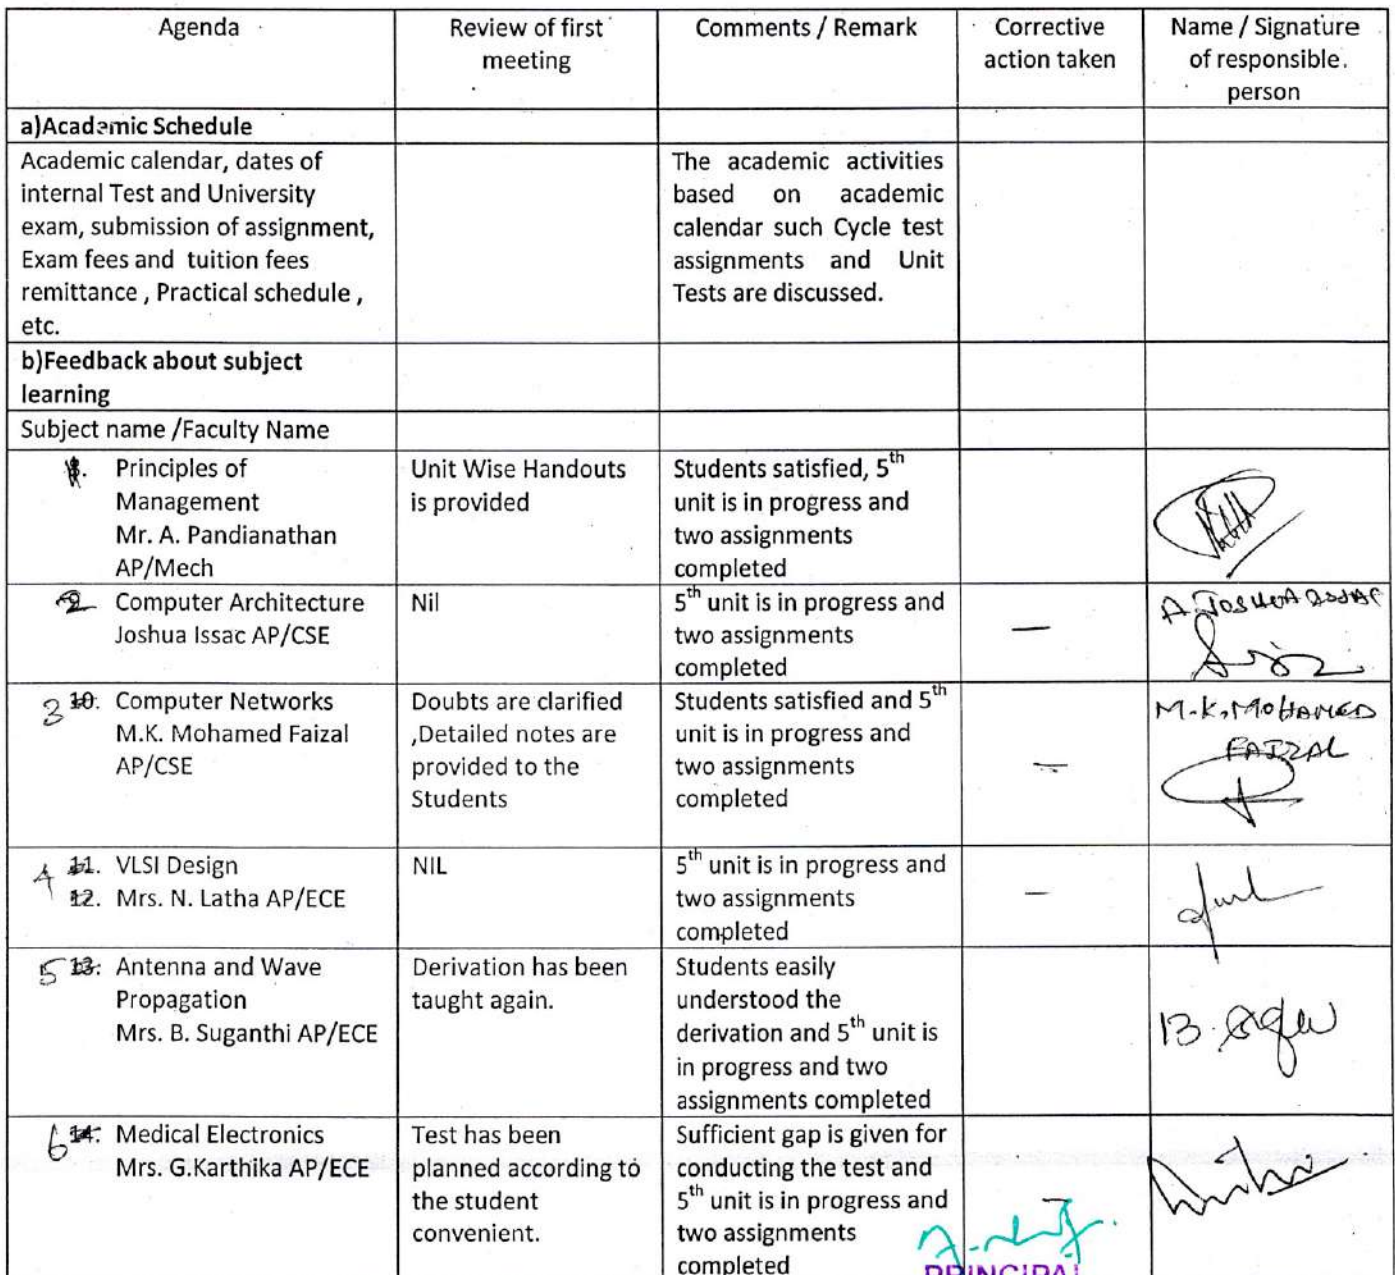 Agenda
Review of first
meeting
Comments / Remark
Corrective
action taken
Name / Signature
of responsible.
person
a)Academic Schedule
Academic calendar, dates of
internal Test and University
exam, submission of assignment,
Exam fees and tuition fees
remittance , Practical schedule ,
etc.
The academic activities
based on academic
calendar such Cycle test
assignments and Unit
Tests are discussed.
b)Feedback about subject
learning
Subject name /Faculty Name
Principles of
Management
Mr. A. Pandianathan
AP/Mech
Unit Wise Handouts
is provided
Students satisfied, 5th
unit is in progress and
two assignments
completed
2 Computer Architecture
Joshua Issac AP/CSE
Nil
5th unit is in progress and
two assignments
completed
—
A. JOSHUA ISSAC
3 10. Computer Networks
M.K. Mohamed Faizal
AP/CSE
Doubts are clarified
,Detailed notes are
provided to the
Students
Students satisfied and 5th
unit is in progress and
two assignments
completed
—
M.K. MOHAMED
FAIZAL
4 11. VLSI Design
12. Mrs. N. Latha AP/ECE
NIL
5th unit is in progress and
two assignments
completed
—
5 13. Antenna and Wave
Propagation
Mrs. B. Suganthi AP/ECE
Derivation has been
taught again.
Students easily
understood the
derivation and 5th unit is
in progress and two
assignments completed
6 14. Medical Electronics
Mrs. G.Karthika AP/ECE
Test has been
planned according to
the student
convenient.
Sufficient gap is given for
conducting the test and
5th unit is in progress and
two assignments
completed
PRINCIPAL